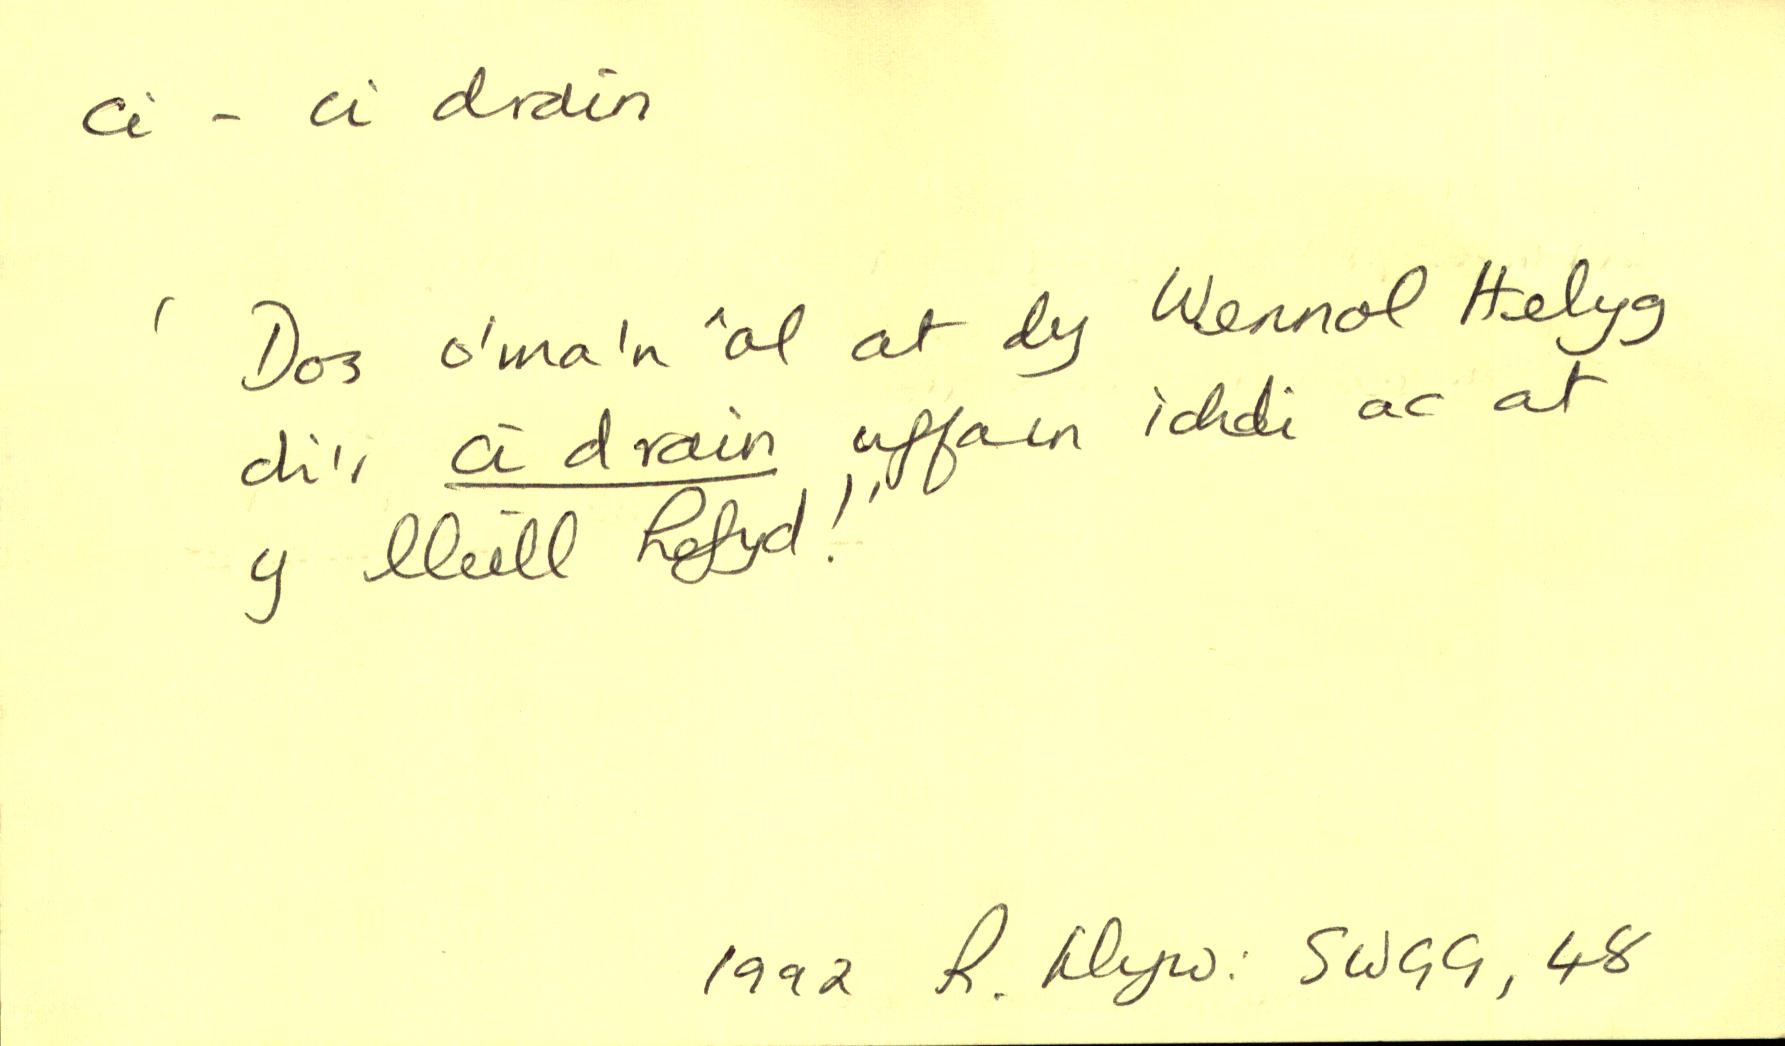 ci - ci drain
' Dos o'ma'n ôl at dy Wennol Helyg
di'r ci drain uffarn ichdi ac at
y lleill hefyd!'
1992 R. Alyw: SWGG, 48